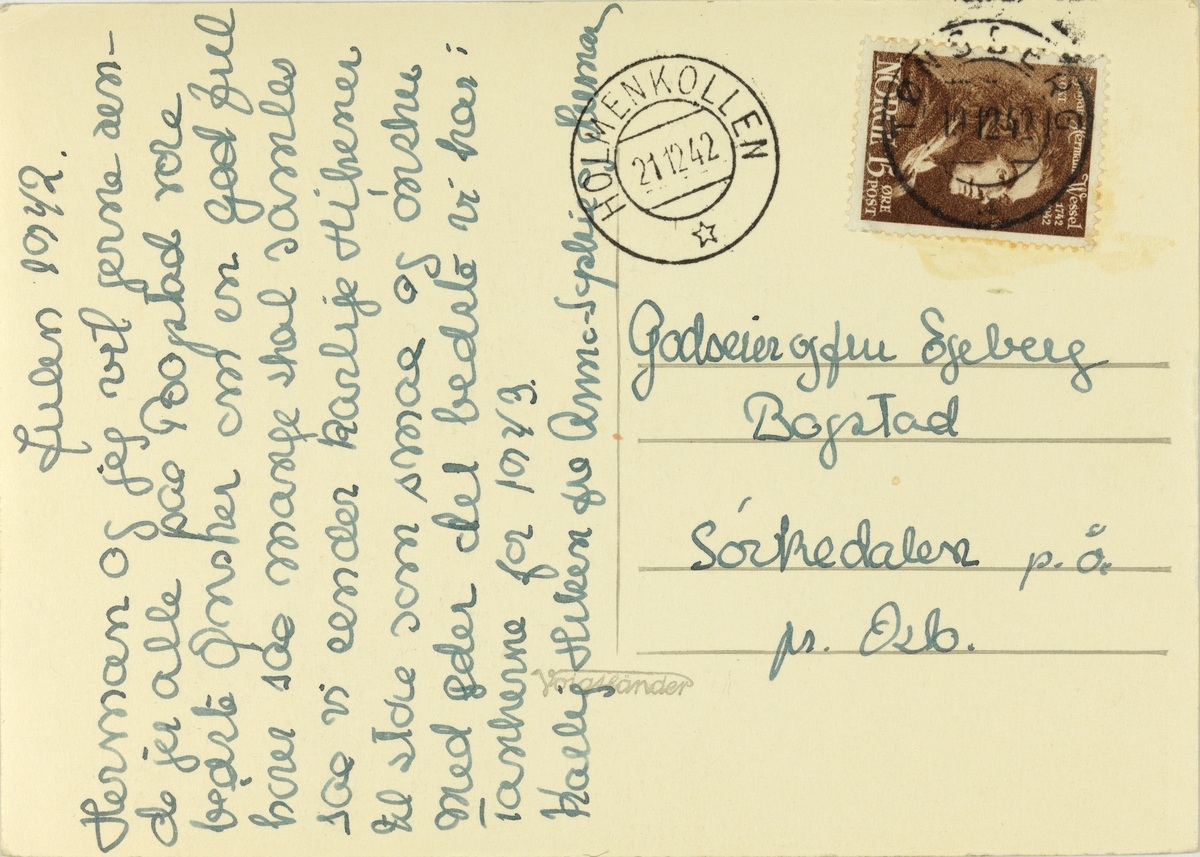 Julen 1942.
Herman og jeg vil gerne sen-
de jer alle paa Bogstad vore
bedste Ønsker om en god Jul
hører saa mange skal samles
saa vi sender kærlige Hilsener
til store som smaa og ønsker
med eder det bedste vi har i
tankerne for 1943.
Kærlig Hilsen fra Anne-Sophie Herman
HOLMENKOLLEN
21 12 42
TØNSBERG
11 12 42
NORGE 15 ØRE
POST
Johan Herman Wessel
1742
1942
Godseier og fru Egeberg
Bogstad
Sórkedalen p. å.
pr. Oslo.
Voigtländer